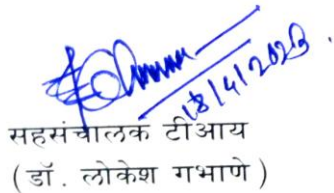 18/4/2023
सहसंचालक टीआय
(डॉ. लोकेश गभाणे)